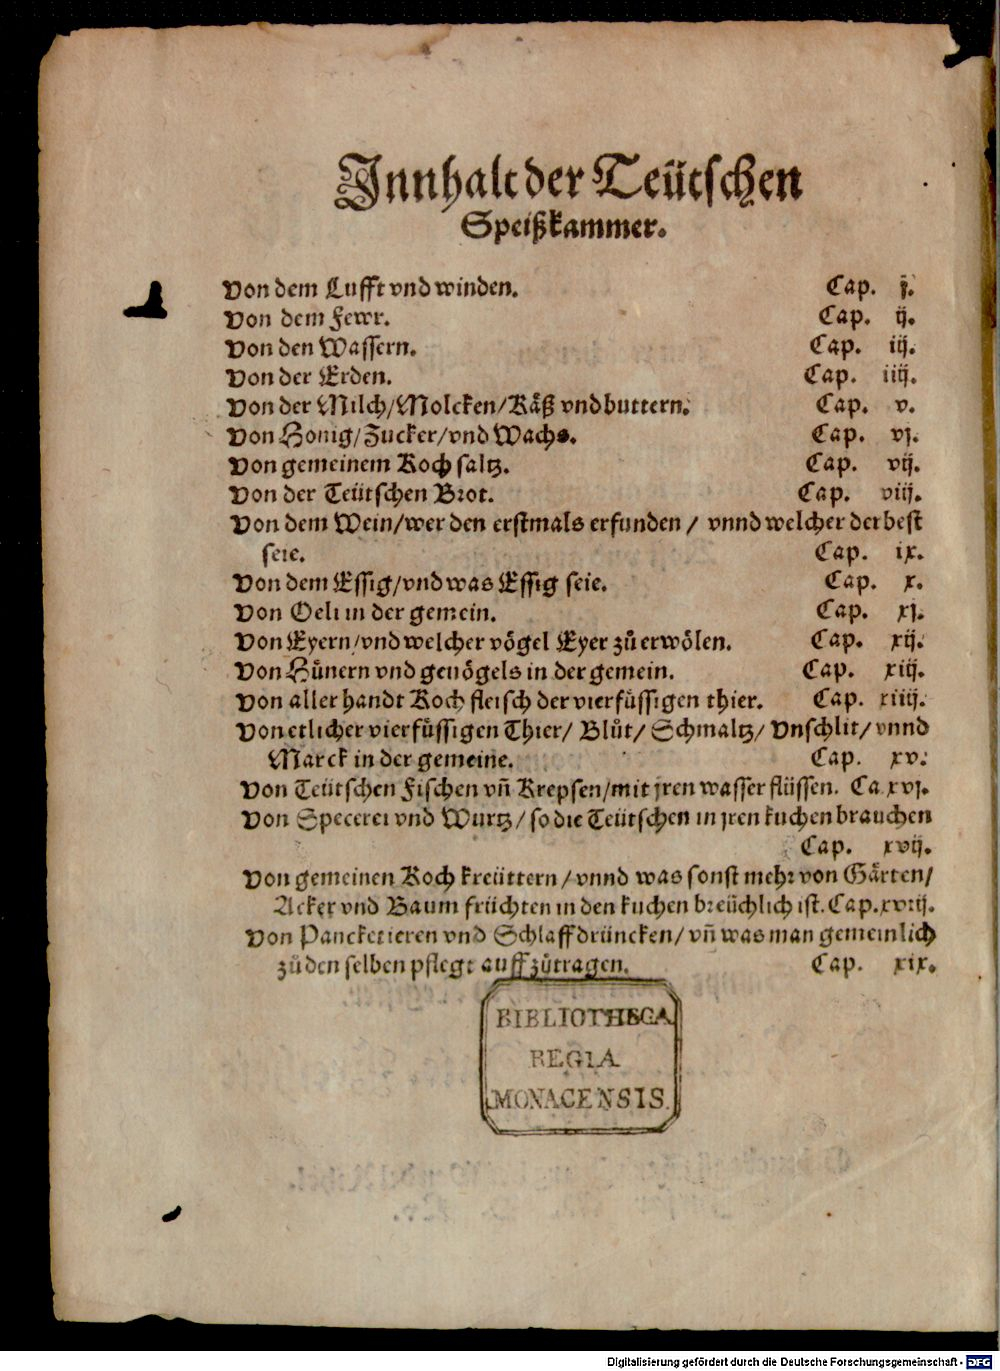 Innhalt der Teütschen
Speißkammer.
Von dem Lufft vnd winden. Cap. j.
Von dem Fewr. Cap. ij.
Von den Wassern. Cap. iij.
Von der Erden. Cap. iiij.
Von der Milch/Molcken/Käß vnd buttern. Cap. v.
Von Honig/Zucker/vnd Wachs. Cap. vj.
Von gemeinem Koch saltz. Cap. vij.
Von der Teütschen Brot. Cap. viij.
Von dem Wein/wer den erstmals erfunden / vnnd welcher der best
seie. Cap. ix.
Von dem Essig/vnd was Essig seie. Cap. x.
Von Oeli in der gemein. Cap. xj.
Von Eyern/vnd welcher vögel Eyer zů erwölen. Cap. xij.
Von Hůnern vnd geuögels in der gemein. Cap. xiij.
Von aller handt Koch fleisch der vierfüssigen thier. Cap. xiiij.
Von etlicher vierfüssigen Thier/ Blůt/ Schmaltz/ Vnschlit/ vnnd
Marck in der gemeine. Cap. xv.
Von Teütschen Fischen vñ Krepsen/mit jren wasser flüssen. Ca. xvj.
Von Specerei vnd Wurtz/ so die Teütschen in jren kuchen brauchen
Cap. xvij.
Von gemeinen Koch kreüttern/vnnd was sonst mehr von Gärten/
Acker vnd Baum früchten in den kuchen breüchlich ist. Cap. xviij.
Von Pancketieren vnd Schlaffdrüncken/ vñ was man gemeinlich
zů den selben pflegt auff zůtragen. Cap. xix.
BIBLIOTHECA
REGIA
MONACENSIS.
Digitalisierung gefördert durch die Deutsche Forschungsgemeinschaft - DFG